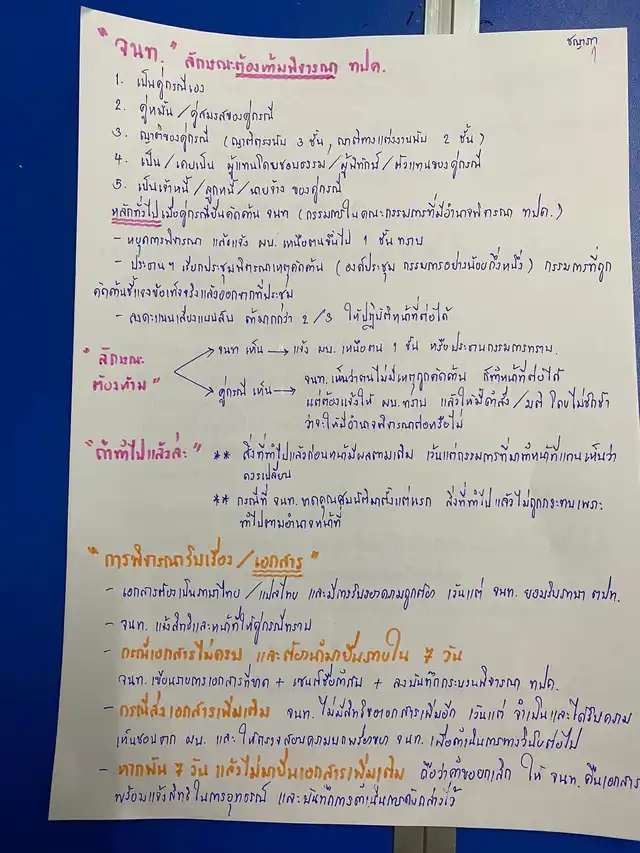 ชญาภา
"จนท." ลักษณะต้องห้ามพิจารณา ทปค.
1. เป็นคู่กรณีเอง
2. คู่หมั้น / คู่สมรสของคู่กรณี
3. ญาติของคู่กรณี (ญาติตรงนับ 3 ชั้น, ญาติทางแต่งงานนับ 2 ชั้น)
4. เป็น / เคยเป็น ผู้แทนโดยชอบธรรม / ผู้พิทักษ์ / ตัวแทนของคู่กรณี
5. เป็นเจ้าหนี้ / ลูกหนี้ / นายจ้าง ของคู่กรณี
หลักทั่วไป เมื่อคู่กรณียื่นคัดค้าน จนท (กรรมการในคณะกรรมการที่มีอำนาจพิจารณา ทปค.)
- หยุดการพิจารณา แล้วแจ้ง ผบ. เหนือตนขึ้นไป 1 ชั้น ทราบ
- ประธานฯ เรียกประชุมพิจารณาเหตุคัดค้าน (องค์ประชุม กรรมการอย่างน้อยกึ่งหนึ่ง) กรรมการที่ถูก
คัดค้านชี้แจงข้อเท็จจริงแล้วออกจากที่ประชุม
- ลงคะแนนเสียงแบบลับ ถ้ามากกว่า 2/3 ให้ปฏิบัติหน้าที่ต่อได้
"ลักษณะ
ต้องห้าม"
จนท เห็น → แจ้ง ผบ. เหนือตน 1 ชั้น หรือประธานกรรมการทราบ.
คู่กรณี เห็น → จนท. เห็นว่าตนไม่มีเหตุถูกคัดค้าน ก็ทำหน้าที่ต่อได้
แต่ต้องแจ้งให้ ผบ. ทราบ แล้วให้มีคำสั่ง / มติ โดยไม่ชักช้า
ว่าจะให้มีอำนาจพิจารณาต่อหรือไม่
"ถ้าทำไปแล้วล่ะ"
** สิ่งที่ทำไปแล้วก่อนหน้ามีผลตามเดิม เว้นแต่กรรมการที่มาทำหน้าที่แทนเห็นว่า
ควรเปลี่ยน
** กรณีที่ จนท. ขาดคุณสมบัติมาตั้งแต่แรก สิ่งที่ทำไปแล้วไม่ถูกกระทบเพราะ
ทำไปตามอำนาจหน้าที่
"การพิจารณารับเรื่อง / เอกสาร"
- เอกสารต้องเป็นภาษาไทย / แปลไทย และมีการรับรองความถูกต้อง เว้นแต่ จนท. ยอมรับภาษา ตปท.
- จนท. แจ้งสิทธิและหน้าที่ให้คู่กรณีทราบ
- กรณีเอกสารไม่ครบ และต้องนำมายื่นภายใน 7 วัน
จนท. เขียนรายการเอกสารที่ขาด + เซนต์ชื่อกำกับ + ลงบันทึกกระบวนพิจารณา ทปค.
- กรณีส่งเอกสารเพิ่มเติม จนท. ไม่มีสิทธิขอเอกสารเพิ่มอีก เว้นแต่ จำเป็นและได้รับความ
เห็นชอบจาก ผบ. และให้ตรวจสอบความบกพร่องของ จนท. เพื่อดำเนินการทางวินัยต่อไป
- หากพ้น 7 วัน แล้วไม่มายื่นเอกสารเพิ่มเติม ถือว่าคำขอยกเลิก ให้ จนท. คืนเอกสาร
พร้อมแจ้งสิทธิในการอุทธรณ์ และบันทึกการดำเนินการดังกล่าวไว้